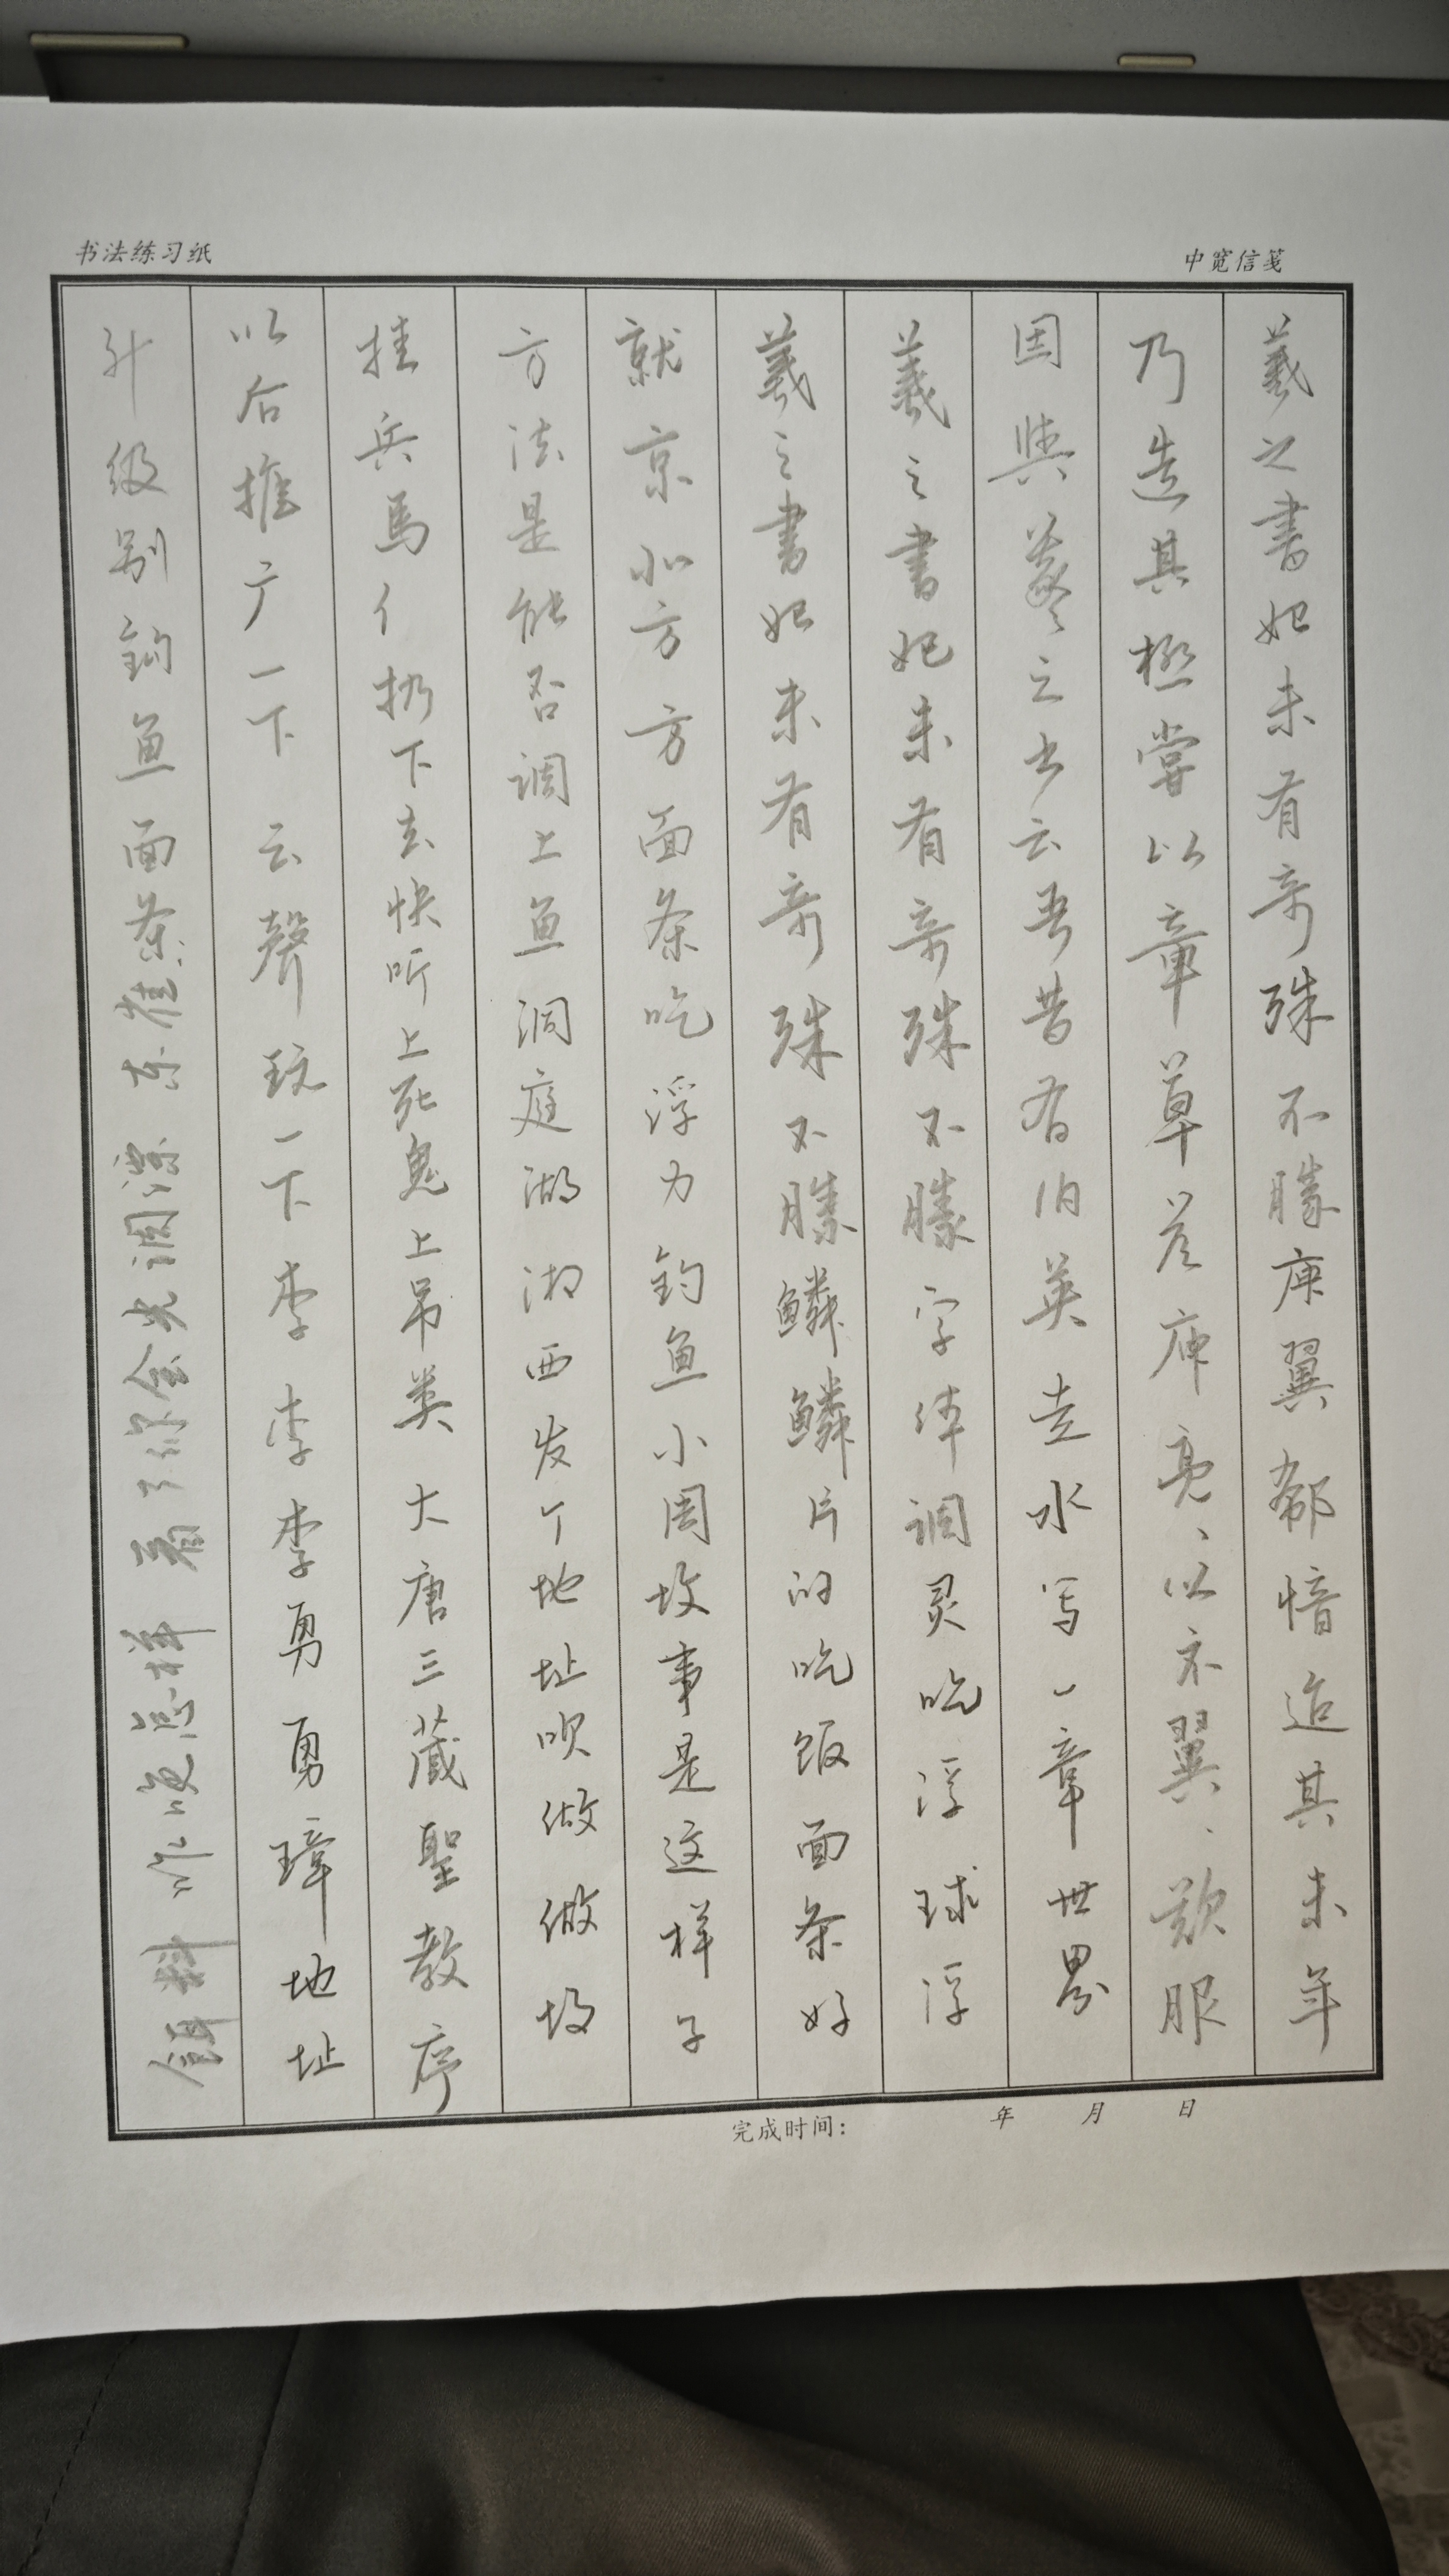 书法练习纸
中宽信笺
羲之書妃未有奇殊不勝庾翼郗愔迨其末年
乃造其極嘗以章草答庾亮、以示翼、歎服
因與羲之书云吾昔有伯英走水写一章世界
羲之書妃未有奇殊不勝字体调灵吃浮球浮
羲之書妃未有奇殊不勝鳞鳞片的吃饭面条好
就京北方方面条吃浮力钓鱼小周故事是这样子
方法是能否调上鱼洞庭湖湘西发个地址呗做做坟
挂兵馬个扔下去快听上死鬼上吊类大唐三藏聖教序
以合推广一下云聲玩一下李李李勇勇璋地址
升级别钩鱼面条 调漂 金 看 咋 饵料
完成时间：
年 月 日